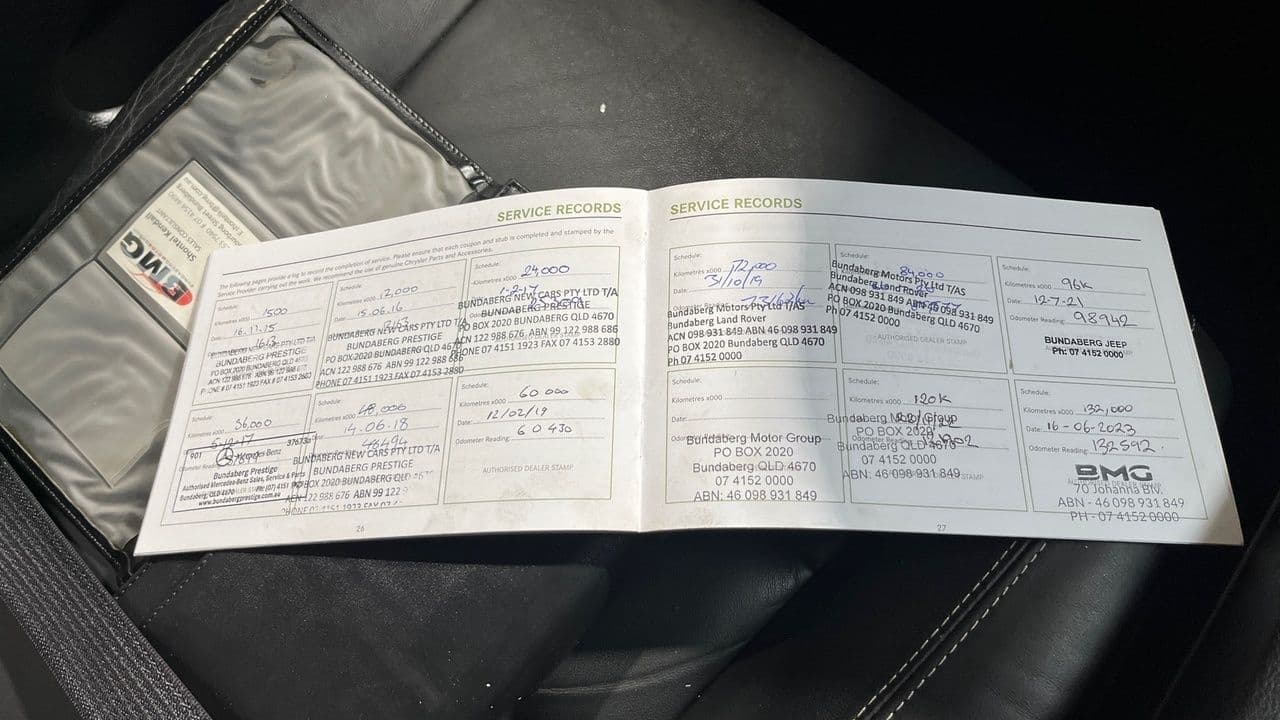 SERVICE RECORDS
The following pages provide a log to record the completion of service. Please ensure that each coupon and stub is completed and stamped by the
Service Provider carrying out the work. We recommend the use of genuine Chrysler Parts and Accessories.
Schedule:
Kilometres x000 1500
Date: 16.11.15
BUNDABERG PRESTIGE
PO BOX 2020 BUNDABERG QLD 4670
Schedule:
Kilometres x000 12,000
Date: 15.06.16
BUNDABERG NEW CARS PTY LTD T/A
BUNDABERG PRESTIGE
PO BOX 2020 BUNDABERG QLD 4670
ACN 122 988 676 ABN 99 122 988 686
PHONE 07 4151 1923 FAX 07 4153 2880
Schedule:
Kilometres x000 24,000
BUNDABERG NEW CARS PTY LTD T/A
BUNDABERG PRESTIGE
PO BOX 2020 BUNDABERG QLD 4670
ACN 122 988 676 ABN 99 122 988 686
PHONE 07 4151 1923 FAX 07 4153 2880
Schedule:
Kilometres x000 36,000
901
Mercedes Benz
Bundaberg Prestige
Authorised Mercedes-Benz Sales, Service & Parts
Bundaberg QLD 4670
www.bundabergprestige.com.au
Schedule:
Kilometres x000 48,000
Date: 14.06.18
48494
BUNDABERG NEW CARS PTY LTD T/A
BUNDABERG PRESTIGE
PO BOX 2020 BUNDABERG QLD 4670
Schedule:
Kilometres x000 60 000
Date: 12/02/19
Odometer Reading: 60 430
AUTHORISED DEALER STAMP
26
SERVICE RECORDS
Schedule:
Kilometres x000 72,000
Date: 31/10/19
Odometer Reading:
Bundaberg Motors Pty Ltd T/AS
Bundaberg Land Rover
ACN 098 931 849 ABN 46 098 931 849
PO BOX 2020 Bundaberg QLD 4670
Ph 07 4152 0000
Schedule:
84,000
Bundaberg Motors Pty Ltd T/AS
Bundaberg Land Rover
ACN 098 931 849 ABN 46 098 931 849
PO BOX 2020 Bundaberg QLD 4670
Ph 07 4152 0000
AUTHORISED DEALER STAMP
Schedule:
Kilometres x000 96K
Date: 12-7-21
Odometer Reading: 98942
BUNDABERG JEEP
Ph: 07 4152 0000
Schedule:
Kilometres x000
Date:
Bundaberg Motor Group
PO BOX 2020
Bundaberg QLD 4670
07 4152 0000
ABN: 46 098 931 849
Schedule:
Kilometres x000 120K
Bundaberg Motor Group
PO BOX 2020
Bundaberg QLD 4670
07 4152 0000
ABN: 46 098 931 849
Schedule:
Kilometres x000 132,000
Date: 16-06-2023
Odometer Reading: 132592
BMG
70 Johanna Blv.
ABN - 46 098 931 849
PH - 07 4152 0000
27
BMG
Shontel Kendall
SALES CONSULTANT